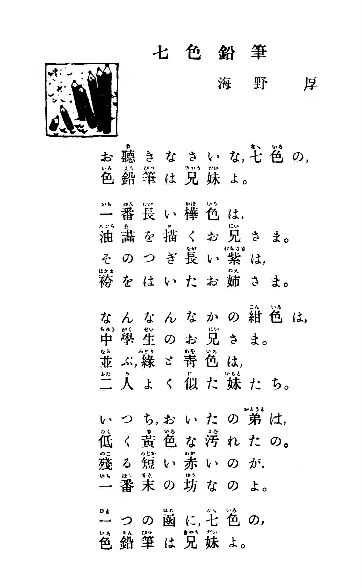 七色鉛筆
海野厚
お聽きなさいな,七色の,
色鉛筆は兄妹よ。
一番長い樺色は,
油畵を描くお兄さま。
そのつぎ長い紫は,
袴をはいたお姉さま。
なんなんなかの紺色は,
中學生のお兄さま。
並ぶ,綠と靑色は,
二人よく似た妹たち。
いつち,おいたの弟は,
低く黃色な汚れたの。
殘る短い赤いのが,
一番末の坊なのよ。
一つの凾に,七色の,
色鉛筆は兄妹よ。